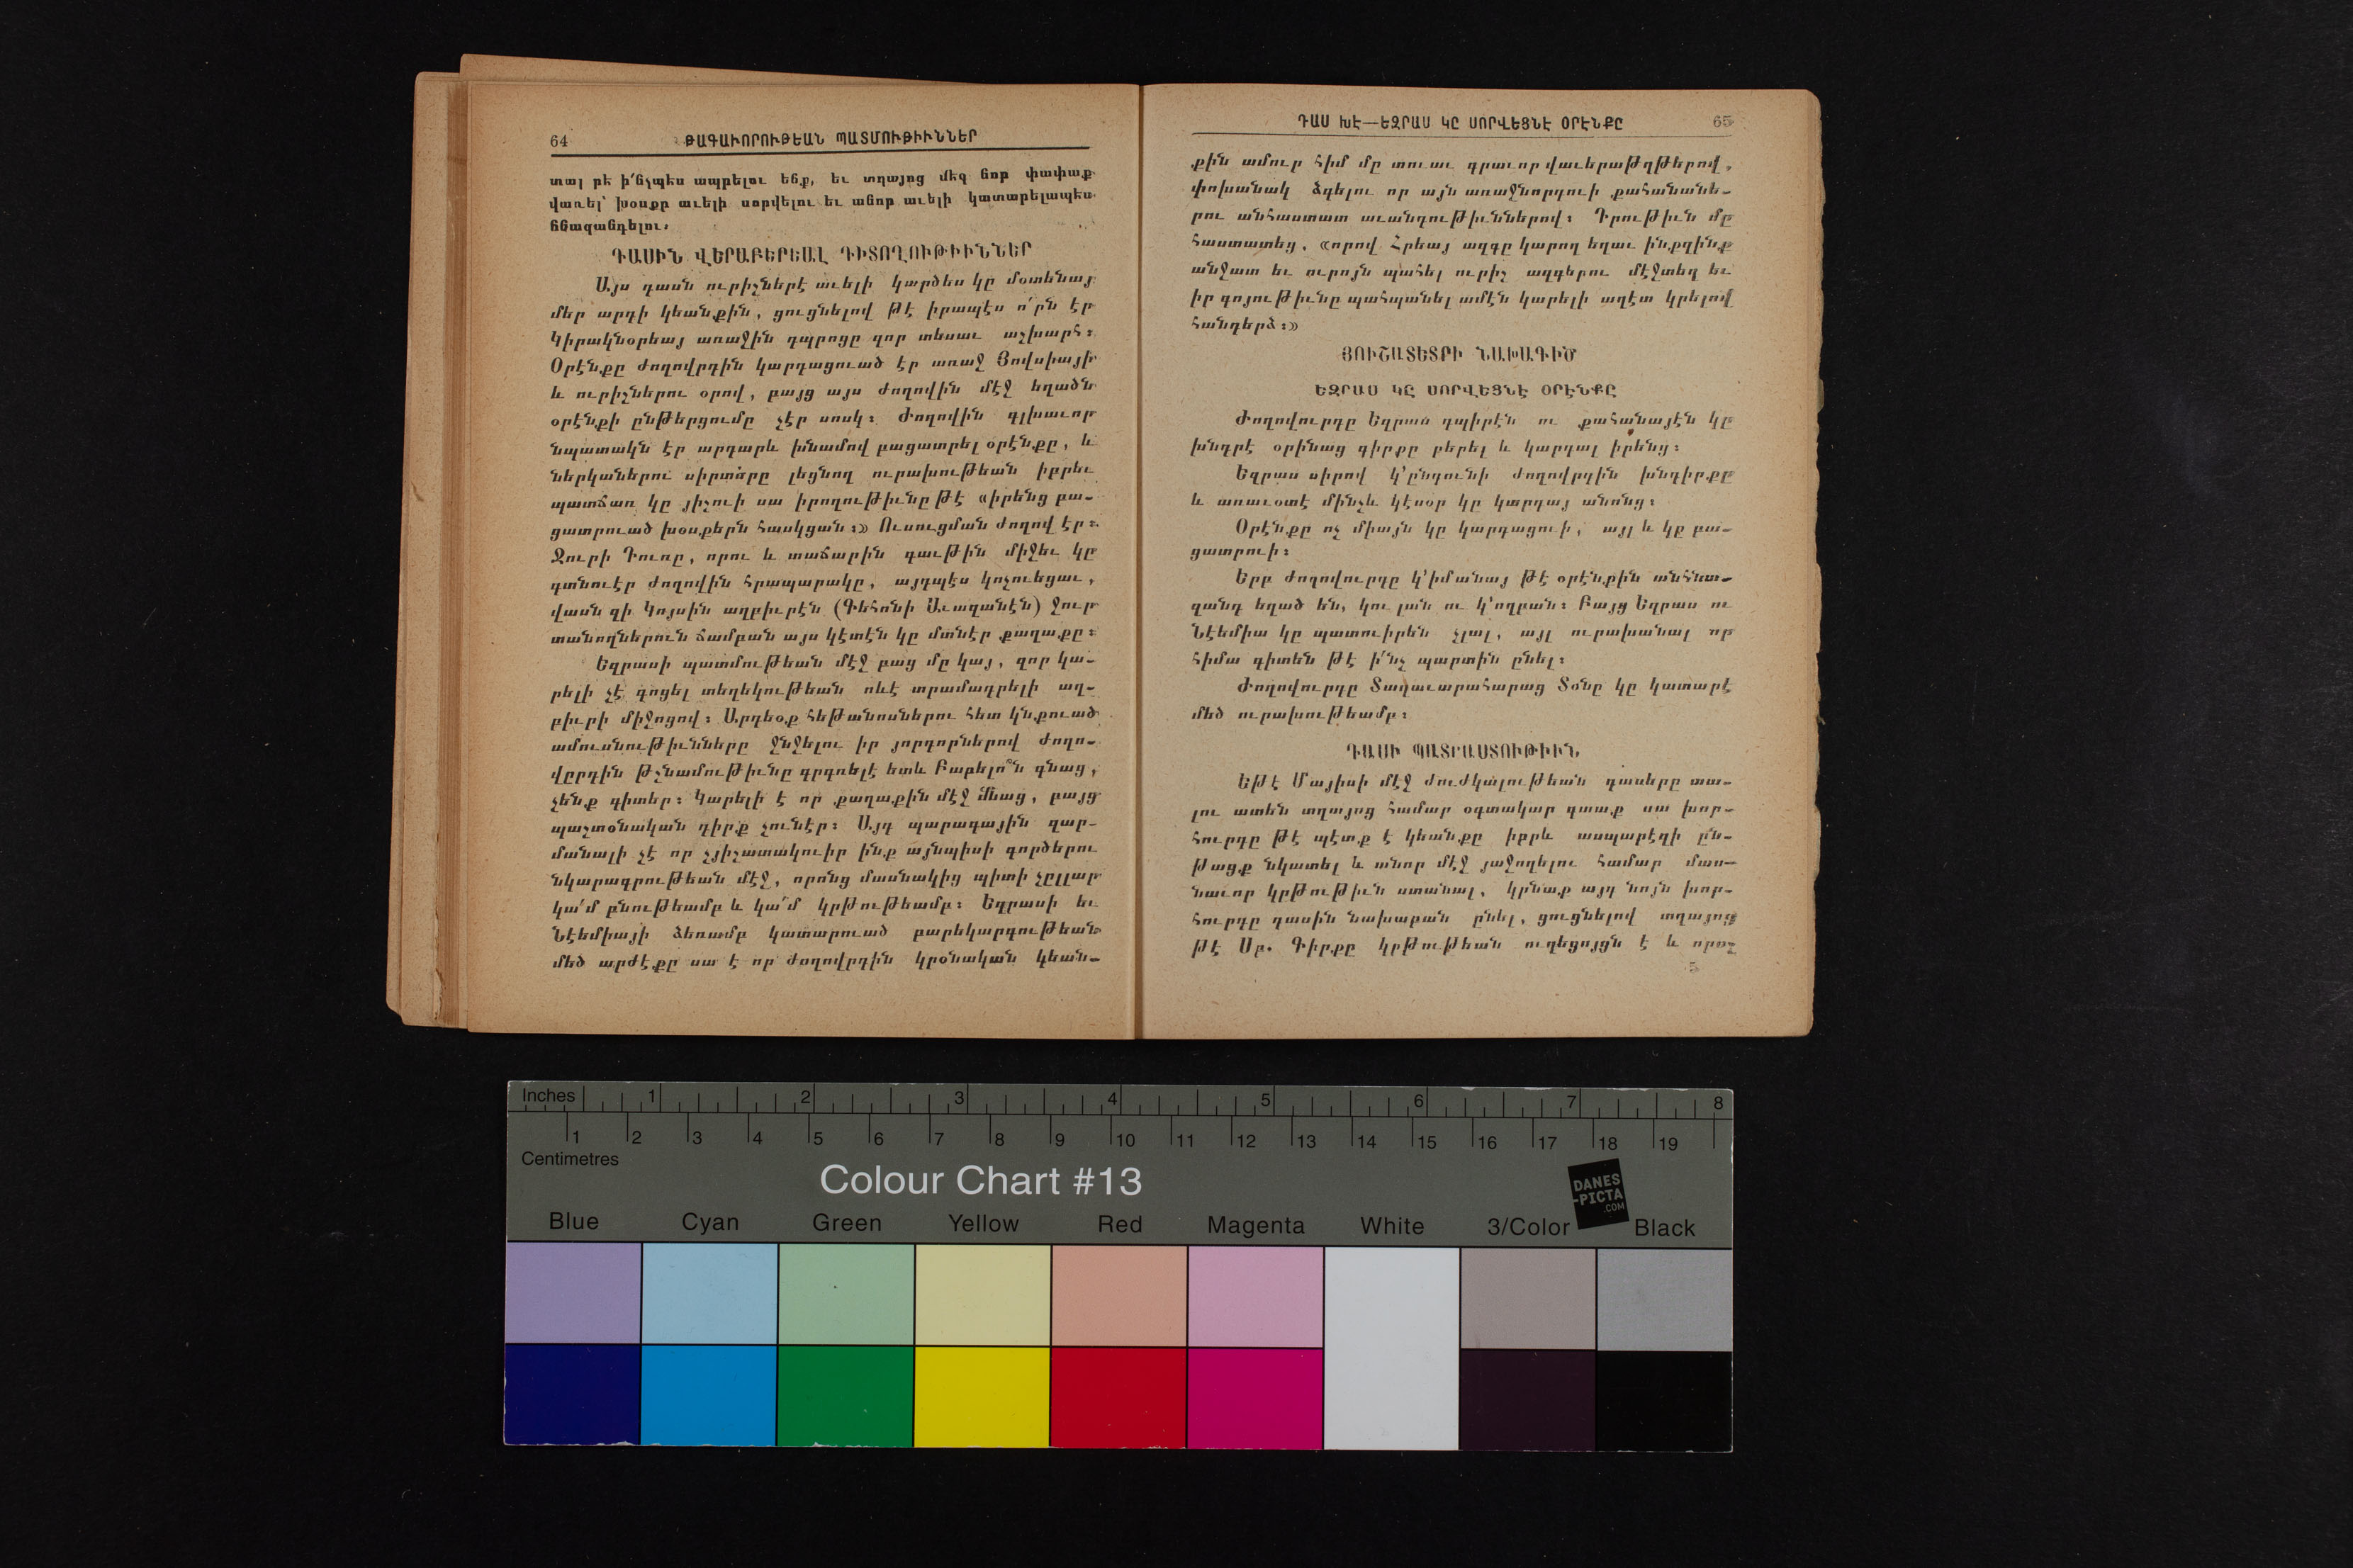 64 ԹԱԳԱՒՈՐՈՒԹԵԱՆ ՊԱՏՄՈՒԹԻՒՆՆԵՐ
տալ թէ ի՛նչպէս ապրելու ենք, եւ տղայոց մէջ նոր փափաք
վառել՝ խօսքը աւելի սորվելու եւ անոր աւելի կատարելապէս
հնազանդելու։
ԴԱՍԻՆ ՎԵՐԱԲԵՐԵԱԼ ԴԻՏՈՂՈՒԹԻՒՆՆԵՐ
Այս դասն ուրիչներէ աւելի կարծես կը մօտենայ
մեր արդի կեանքին, ցուցնելով թէ իրապէս ո՛րն էր
Կիրակնօրեայ առաջին դպրոցը զոր տեսաւ աշխարհ։
Օրէնքը ժողովրդին կարդացուած էր առաջ Յովսիայի
և ուրիչներու օրով, բայց այս ժողովին մէջ եղածն
օրէնքի ընթերցումը չէր սոսկ։ Ժողովին գլխաւոր
նպատակն էր արդարև խնամով բացատրել օրէնքը, և
ներկաներու սիրտերը լեցնող ուրախութեան իբրեւ
պատճառ կը յիշուի սա իրողութիւնը թէ «իրենց բա-
ցատրուած խօսքերն հասկցան։» Ուսուցման ժողով էր։
Ջուրի Դուռը, որու և տաճարին գաւթին միջեւ կը
գտնուէր ժողովին հրապարակը, այդպէս կոչուեցաւ,
վասն զի Կոյսին աղբիւրէն (Գեհոնի Աւազանէն) ջուր
տանողներուն ճամբան այս կէտէն կը մտնէր քաղաքը։
Եզրասի պատմութեան մէջ բաց մը կայ, զոր կա-
րելի չէ գոցել տեղեկութեան ոևէ տրամադրելի աղ-
բիւրի միջոցով։ Արդեօք հեթանոսներու հետ կնքուած
ամուսնութիւնները ջնջելու իր յորդորներով ժողո-
վըրդին թշնամութիւնը գրգռելէ ետև Բաբելո՞ն գնաց,
չենք գիտեր։ Կարելի է որ քաղաքին մէջ մնաց, բայց
պաշտօնական դիրք չունէր։ Այդ պարագային զար-
մանալի չէ որ չյիշատակուիր ինք այնպիսի գործերու
նկարագրութեան մէջ, որոնց մասնակից պիտի չըլլար
կա՛մ բնութեամբ և կա՛մ կրթութեամբ։ Եզրասի եւ
Նէեմիայի ձեռամբ կատարուած բարեկարգութեան
մեծ արժէքը սա է որ ժողովրդին կրօնական կեան-
ԴԱՍ ԽԷ—ԵԶՐԱՍ ԿԸ ՍՈՐՎԵՑՆԷ ՕՐԷՆՔԸ 65
քին ամուր հիմ մը տուաւ գրաւոր վաւերաթղթերով,
փոխանակ ձգելու որ այն առաջնորդուի քահանանե-
րու անհաստատ աւանդութիւններով։ Դրութիւն մը
հաստատեց, «որով Հրեայ ազգը կարող եղաւ ինքզինք
անջատ եւ ուրոյն պահել ուրիշ ազգերու մէջտեղ եւ
իր գոյութիւնը պահպանել ամէն կարելի աղէտ կրելով
հանդերձ։»
ՅՈՒՇԱՏԵՏՐԻ ՆԱԽԱԳԻԾ
ԵԶՐԱՍ ԿԸ ՍՈՐՎԵՑՆԷ ՕՐԷՆՔԸ
Ժողովուրդը Եզրաս դպիրէն ու քահանայէն կը
խնդրէ օրինաց գիրքը բերել և կարդալ իրենց։
Եզրաս սիրով կ՚ընդունի ժողովրդին խնդիրքը
և առաւօտէ մինչև կէսօր կը կարդայ անոնց։
Օրէնքը ոչ միայն կը կարդացուի, այլ և կը բա-
ցատրուի։
Երբ ժողովուրդը կ՚իմանայ թէ օրէնքին անհնա-
զանդ եղած են, կու լան ու կ՚ողբան։ Բայց Եզրաս ու
Նէեմիա կը պատուիրեն չլալ, այլ ուրախանալ որ
հիմա գիտեն թէ ի՛նչ պարտին ընել։
Ժողովուրդը Տաղաւարահարաց Տօնը կը կատարէ
մեծ ուրախութեամբ։
ԴԱՍԻ ՊԱՏՐԱՍՏՈՒԹԻՒՆ
Եթէ Մայիսի մէջ ժուժկալութեան դասերը տա-
լու ատեն տղայոց համար օգտակար գտաք սա խոր-
հուրդը թէ պէտք է կեանքը իբրև ասպարէզի ըն-
թացք նկատել և անոր մէջ յաջողելու համար մաս-
նաւոր կրթութիւն ստանալ, կրնաք այդ նոյն խոր-
հուրդը դասին նախաբան ընել, ցուցնելով տղայոց
թէ Սբ. Գիրքը կրթութեան ուղեցոյցն է և որոշ
5
Inches 1 2 3 4 5 6 7 8
1 2 3 4 5 6 7 8 9 10 11 12 13 14 15 16 17 18 19
Centimetres
Colour Chart #13
DANES
-PICTA
.COM
Blue Cyan Green Yellow Red Magenta White 3/Color Black